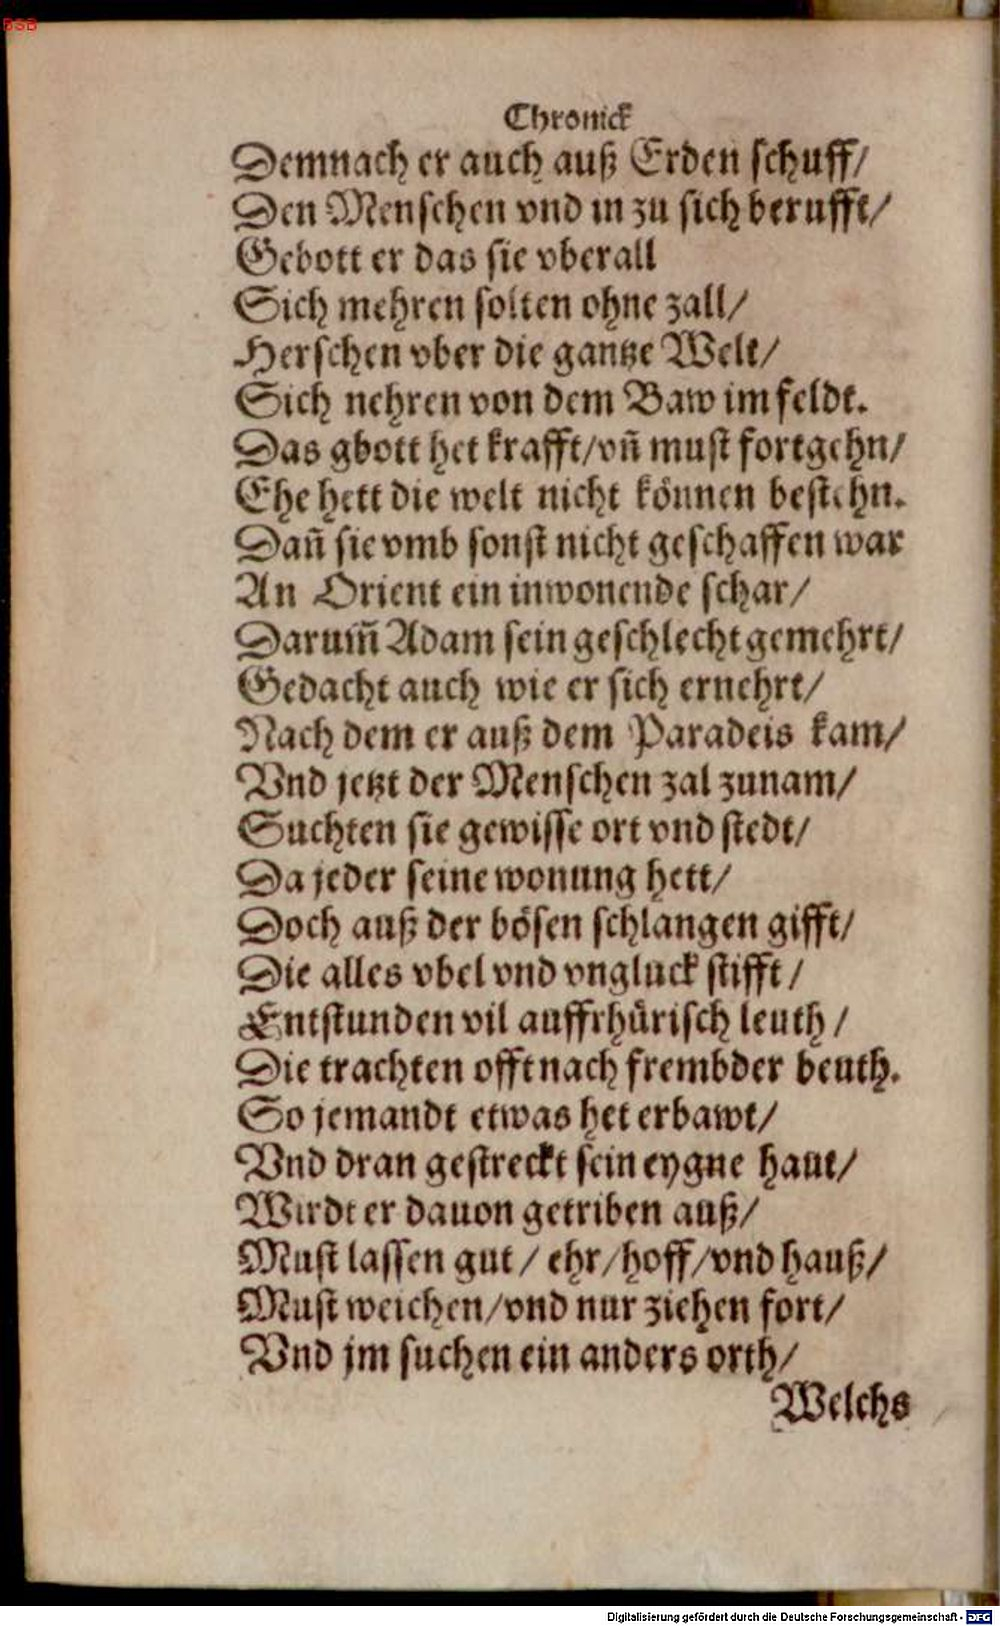 BSB
Chronick
Demnach er auch auß Erden schuff/
Den Menschen vnd in zu sich berufft/
Gebott er das sie vberall
Sich mehren solten ohne zall/
Herschen vber die gantze Welt/
Sich nehren von dem Baw im feldt.
Das gbott het krafft/vñ must fortgehn/
Ehe hett die welt nicht können bestehn.
Dañ sie vmb sonst nicht geschaffen war
An Orient ein inwonende schar/
Darum̃ Adam sein geschlecht gemehrt/
Gedacht auch wie er sich ernehrt/
Nach dem er auß dem Paradeis kam/
Vnd jetzt der Menschen zal zunam/
Suchten sie gewisse ort vnd stedt/
Da jeder seine wonung hett/
Doch auß der bösen schlangen gifft/
Die alles vbel vnd vngluck stifft/
Entstunden vil auffrhürisch leuth/
Die trachten offt nach frembder beuth.
So jemandt etwas het erbawt/
Vnd dran gestreckt sein eygne haut/
Wirdt er dauon getriben auß/
Must lassen gut/ ehr/hoff/vnd hauß/
Must weichen/vnd nur ziehen fort/
Vnd jm suchen ein anders orth/
Welchs
Digitalisierung gefördert durch die Deutsche Forschungsgemeinschaft - DFG